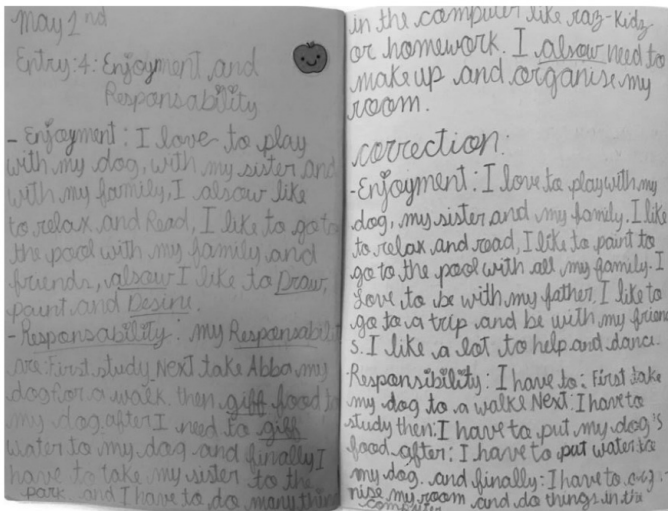 May 2nd
Entry:4: Enjoyment and
Responsability
- Enjoyment: I love to play
with my dog, with my sister and
with my family, I alsow like
to relax and Read, I like to go to
the pool with my family and
friends, alsow I like to Draw,
paint and Desing.
- Responsability: my Responsabilit
are: First study Next take Abba my
dog for a walk then giff food to
my dog after I need to giff
water to my dog and finally I
have to take my sister to the
park. and I have to do many thing
in the computer like raz-kidz
or homework. I alsow need to
make up and organise my
room.
correction:
- Enjoyment: I love to play with my
dog, my sister and my family. I like
to relax and read, I like to paint to
go to the pool with all my family. I
love to be with my father. I like to
go to a trip and be with my friend
s. I like a lot to help and dance.
Responsibility: I have to: First take
my dog to a walke Next: I have to
study then: I have to put my dog's
food after: I have to put water to
my dog. and finally: I have to orga-
nise my room and do things in the
computer